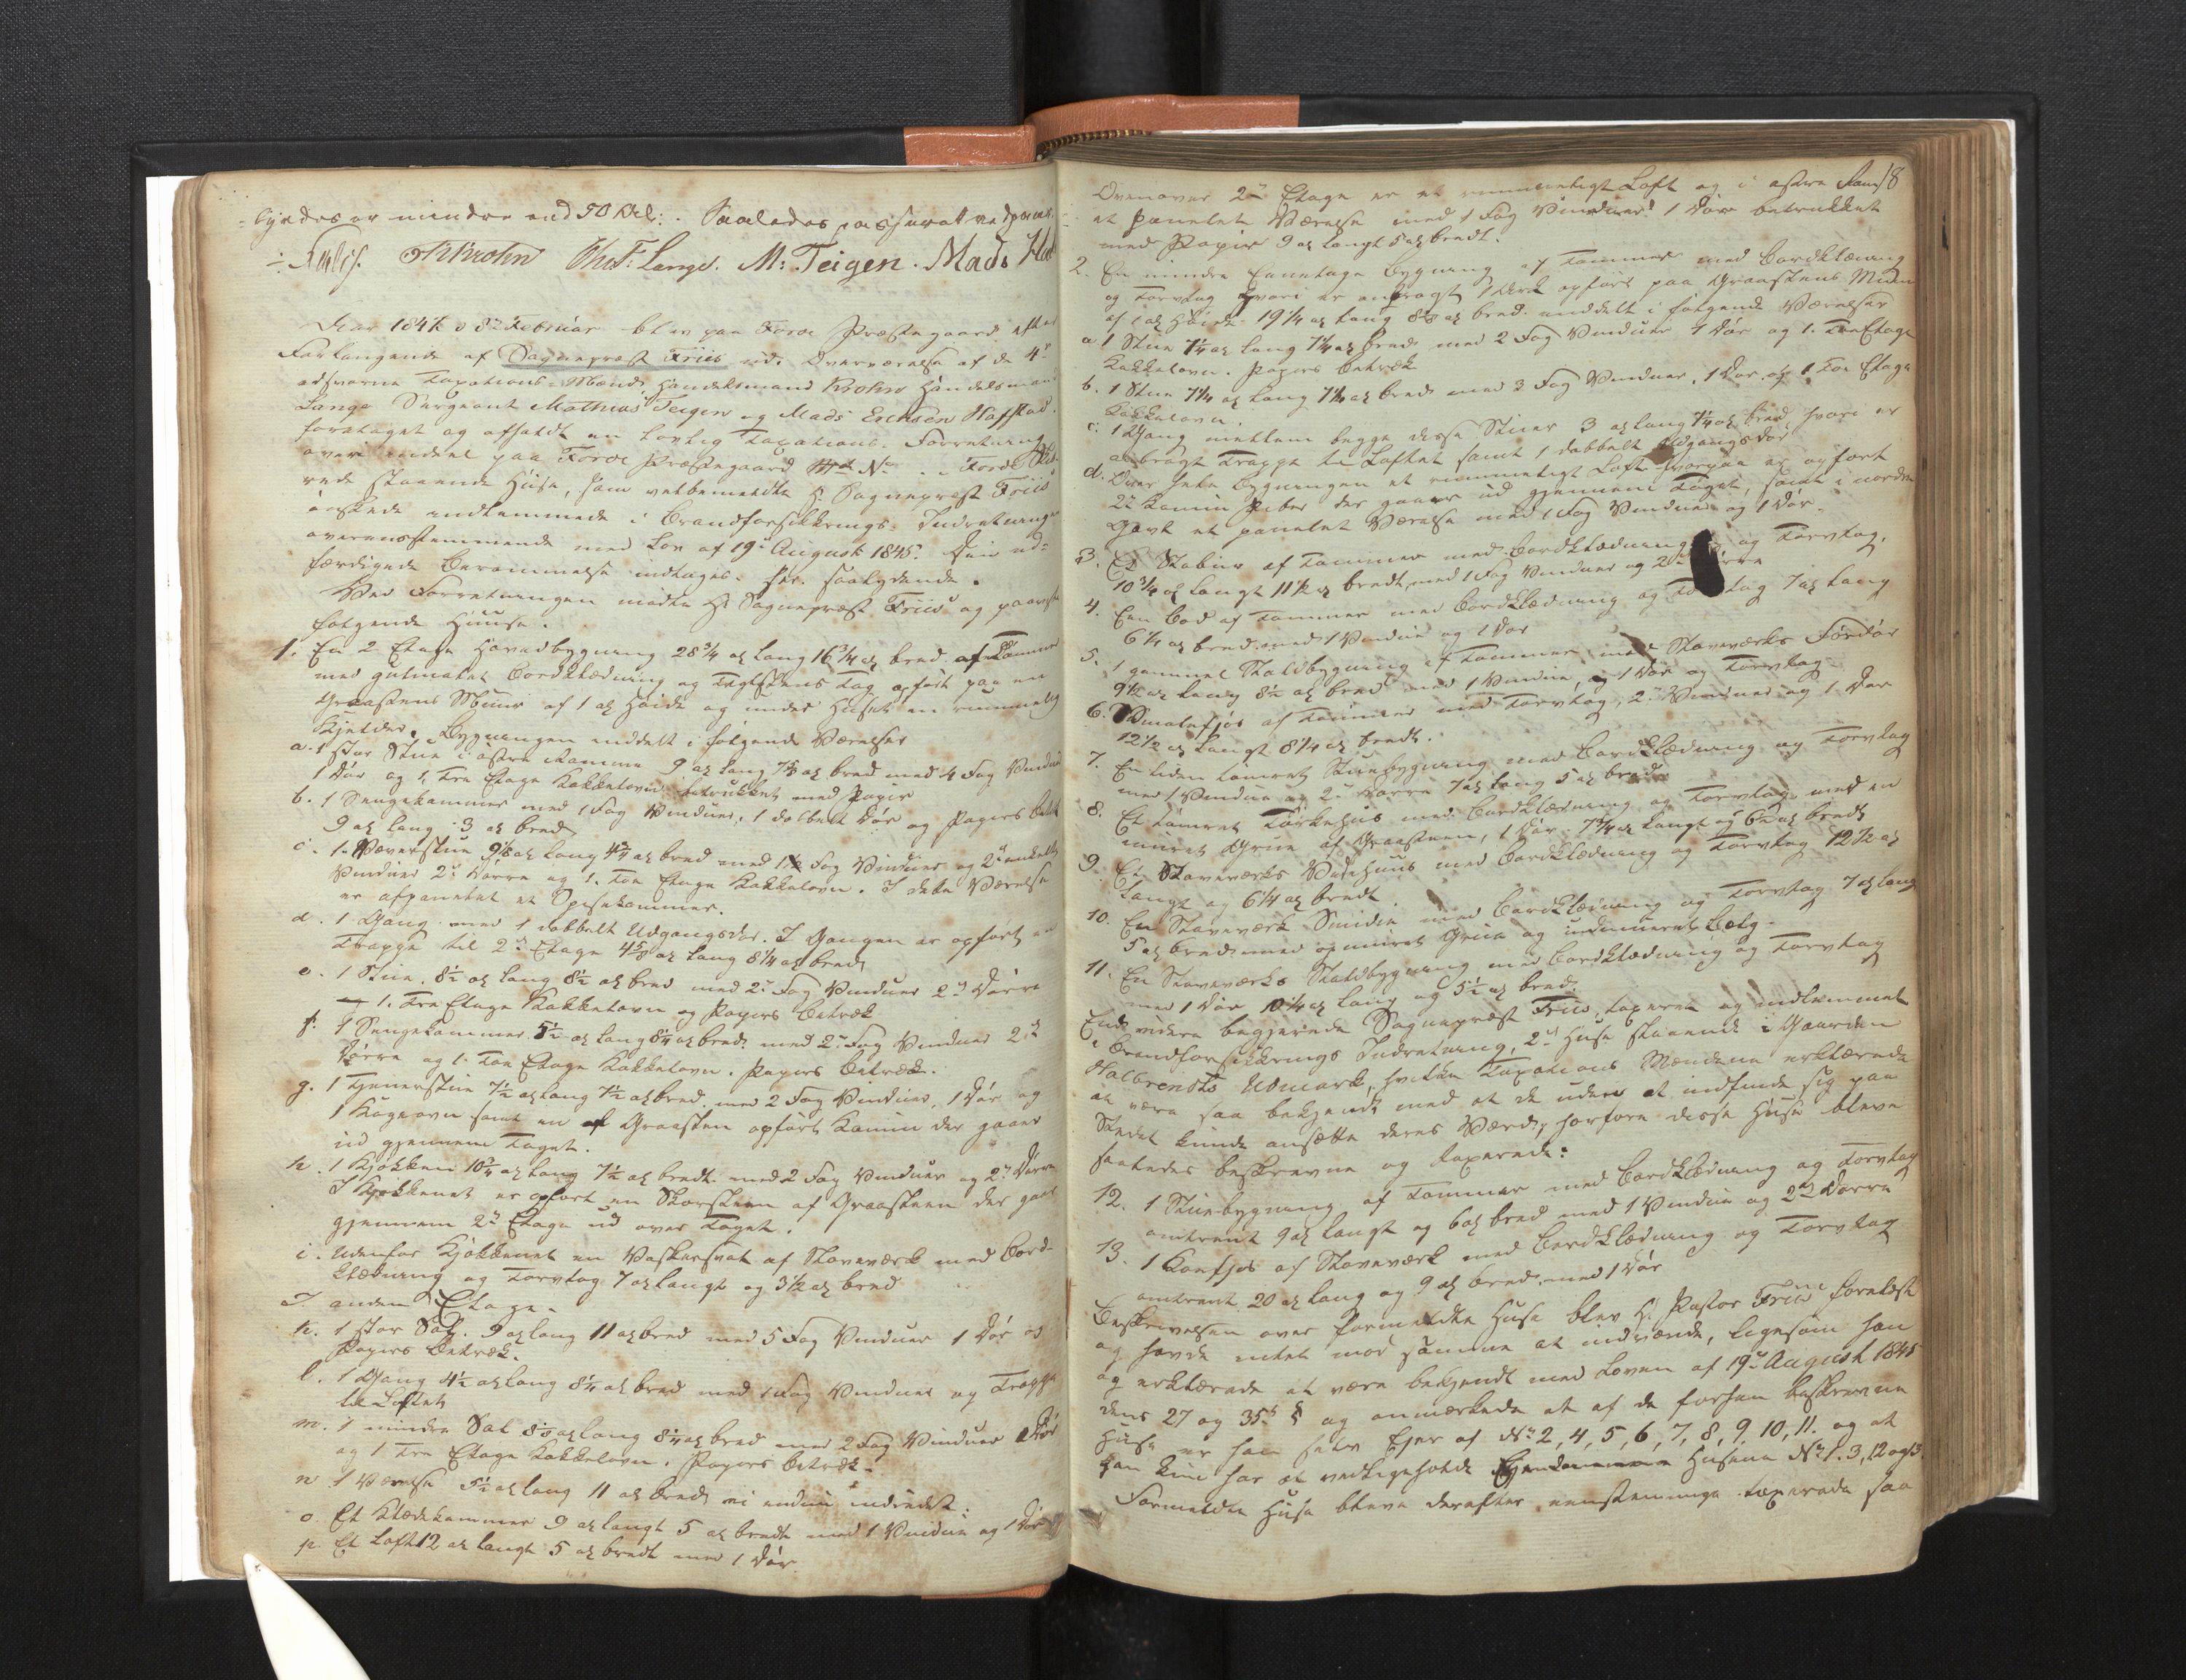 lyder er mindre end 50 Rd: Saaledes passeret ved
Krohn Chr: F: Lange. M: Teigen. Mads
Aar 1847 d 8de Februar blev paa Førde Præstegaard efter
Forlangende af Sognepræst Friis udi Overværelse af de 4de
edsvorne Taxations-Mænd Handelsmand Krohn Handelsmand
Lange Sergeant Mathias Teigen og Mads Erichsen Hafstad
foretaget og afholdt en lovlig Taxations-Forretning
over endeel paa Førde Præstegaard No Førde
rede staaende Huse, som velbemeldte Hr Sognepræst Friis
ønskede indlemmede i Brandforsikkrings-Indretningen
overensstemmende med Lov af 19de August 1845. Den ud-
færdigede Berammelse indtages her saalydende.
Ved Forretningen mødte Hr Sognepræst Friis og paaviste
følgende Huuse.
1. En 2 Etage Hovedbygning 28 3/4 al lang 16 3/4 al bred af Tømmer
med gulmalet Bordklædning og Teglsteens Tag opført paa en
Graasteens Muur af 1 al Høide og under Huset en rummelig
Kjelder. Bygningen inddelt i følgende Værelser
a. 1 stor Stue i østre Ramme 9 al lang 7 al bred med 4 Fag Vinduer
1 Dør og 1. tre Etage Kakkelovn betrukket med Papir
b. 1 Sengekammer med 1 Fag Vinduer, 1 dobbelt Dør og Papirs
9 al lang 3 al bred
c. 1. Væverstue al lang al bred med Fag Vinduer og 2de enkelte
Vinduer 2de Dørre og 1. toe Etage Kakkelovn. I dette Værelse
er afpanelet et Spisekammer.
d. 1 Gang med 1 dobbelt Udgangsdør. I Gangen er opført en
Trappe til 2den Etage al lang 8 1/4 al bred
e. 1 Stue. 8 1/2 al lang 8 1/2 al bred med 2de Fag Vinduer 2de Dørre
1. tre Etage Kakkelovn og Papirs Betræk
f. 1 Sengekammer 5 1/2 al lang 8 1/4 al bred med 2de Fag Vinduer 2de
Dørre og 1. toe Etage Kakkelovn. Papirs Betræk.
g. 1 Tjenerstue 7 1/2 al lang 7 1/2 al bred med 2 Fag Vinduer, 1 Dør og
1 Kogeovn samt en af Graasteen opført Kamin der gaaer
ud gjennem Taget.
h. 1 Kjøkken 10 3/4 al lang 7 1/2 al bredt med 2 Fag Vinduer og 2de Dørre
I Kjøkkenet er opført en Skorsteen af Graasteen der gaar
gjennem 2den Etage ud over Taget.
i. Udenfor Kjøkkenet en af Stavværk med Bord-
klædning og Torvtag 7 al langt og 3 1/2 al bred
I anden Etage.
k. 1 stor Sal. 9 al lang 11 al bred med 5 Fag Vinduer 1 Dør og
Papirs Betræk.
l. 1 Gang 4 1/2 al lang 8 1/4 al bred med 1 Fag Vinduer og Trappe
til Loftet
m. 1 mindre Sal al lang 8 1/4 al bred med 2 Fag Vinduer Dør
og 1 tre Etage Kakkelovn. Papirs Betræk.
n 1 Værelse 5 1/2 al lang 11 al bred ei endnu indredet.
o. Et Klædekammer 9 al langt 5 al bredt med 1 Vindue og 1 Dør
p. Et Loft 12 al langt 5 al bredt med 1 Dør
8
Ovenover 2den Etage er et rummeligt Loft og i østre Ramme
et panelet Værelse med 1 Fag Vinduer 1 Dør betrukket
med Papir 9 al langt 5 al bredt.
2. En mindre Eenetage Bygning af Tømmer med Bordklædning
og Torvtag hvori er anbragt opført paa Graasteens Muur
af 1 al Høide 19 1/4 al lang al bred inddelt i følgende Værelser
a 1 Stue al lang al bred med 2 Fag Vinduer 1 Dør og 1. tre Etage
Kakkelovn. Papirs Betræk
b. 1 Stue 7 1/4 al lang al bred med 3 Fag Vinduer, 1 Dør og 1 toe Etage
Kakkelovn.
c. 1 Gang mellem begge disse Stuer 3 al lang al bred hvori er
anbragt Trappe til Loftet samt 1 dobbelt Udgangsdør
d. Over hele Bygningen et rummeligt Loft hvorpaa er opført
2de Kamin Piber der gaaer ud gjennem Taget, samt i nordre
Gavl et panelet Værelse med 1 Fag Vinduer og 1 Dør.
3. Et Stabur af Tømmer med Bordklædning og Torvtag.
10 3/4 al langt 11 1/2 al bredt med 1 Fag Vinduer og 2de Dørre
4. Een Bod af Tømmer med Bordklædning og Torvtag 7 al lang
6 1/4 al bred med 1 Vindue og 1 Dør
5. 1 gammel Staldbygning af Tømmer med Stavværks Fordør
9 1/2 al lang 8 1/2 al bred med 1 Vindue, 1 Dør og Torvtag
6. Smalefjøs af Tømmer med Torvtag, 2de Vinduer og 1 Dør
12 1/2 al langt 8 1/4 al bredt.
7. En liden tømret Stuebygning med Bordklædning og Torvtag
med 1 Vindue og 2de Dørre 7 al lang 5 al bred
8. Et tømret Tørkehus med Bordklædning og Torvtag med en
muret Grue af Graasteen, 1 Dør 7 3/4 al langt og al bredt
9. Et Stavværks Vedehuus med Bordklædning og Torvtag 12 1/2 al
langt og 6 1/4 al bredt.
10. En Stavværk Smidie med Bordklædning og Torvtag 7 al lang
5 al bred med opmuret Grue og indmuret Bælg.
11. En Stavværks Staldbygning med Bordklædning og Torvtag
med 1 Dør 10 1/4 al lang og 5 1/2 al bred.
Endvidere begjerede Sognepræst Friis, taxeret og indlemmet
i Brandforsikkrings Indretning, 2de Huse staaende i Gaarden
Halbrendts Udmark, hvilke Taxations Mændene erklærede
at være saa bekjendt med at de uden at indfinde sig paa
Stedet kunde ansætte deres Værd, hvorfore disse Huse bleve
saaledes beskrevne og taxerede:
12. 1 Stuebygning af Tømmer med Bordklædning og Torvtag
omtrent 9 al langt og 6 al bred med 1 Vindue og 2de Dørre
13. 1 Koefjøs af Stavværk med Bordklædning og Torvtag
omtrent 20 al lang og 9 al bred med 1 Dør
Beskrivelsen over formeldte Huse blev Hr Pastor Friis forelæst
og havde intet mod samme at indvende, ligesom han
og erklærede at være bekjendt med Loven af 19de August 1845
dens 27 og 35te § og anmærkede at af de forhen beskrevne
Huse er han selv Ejer af No 2, 4, 5, 6, 7, 8, 9, 10, 11. og at
han kun har at vedligeholde Husene No 1. 3, 12 og 13.
Formeldte Huse bleve derefter eenstemmige taxerede saa